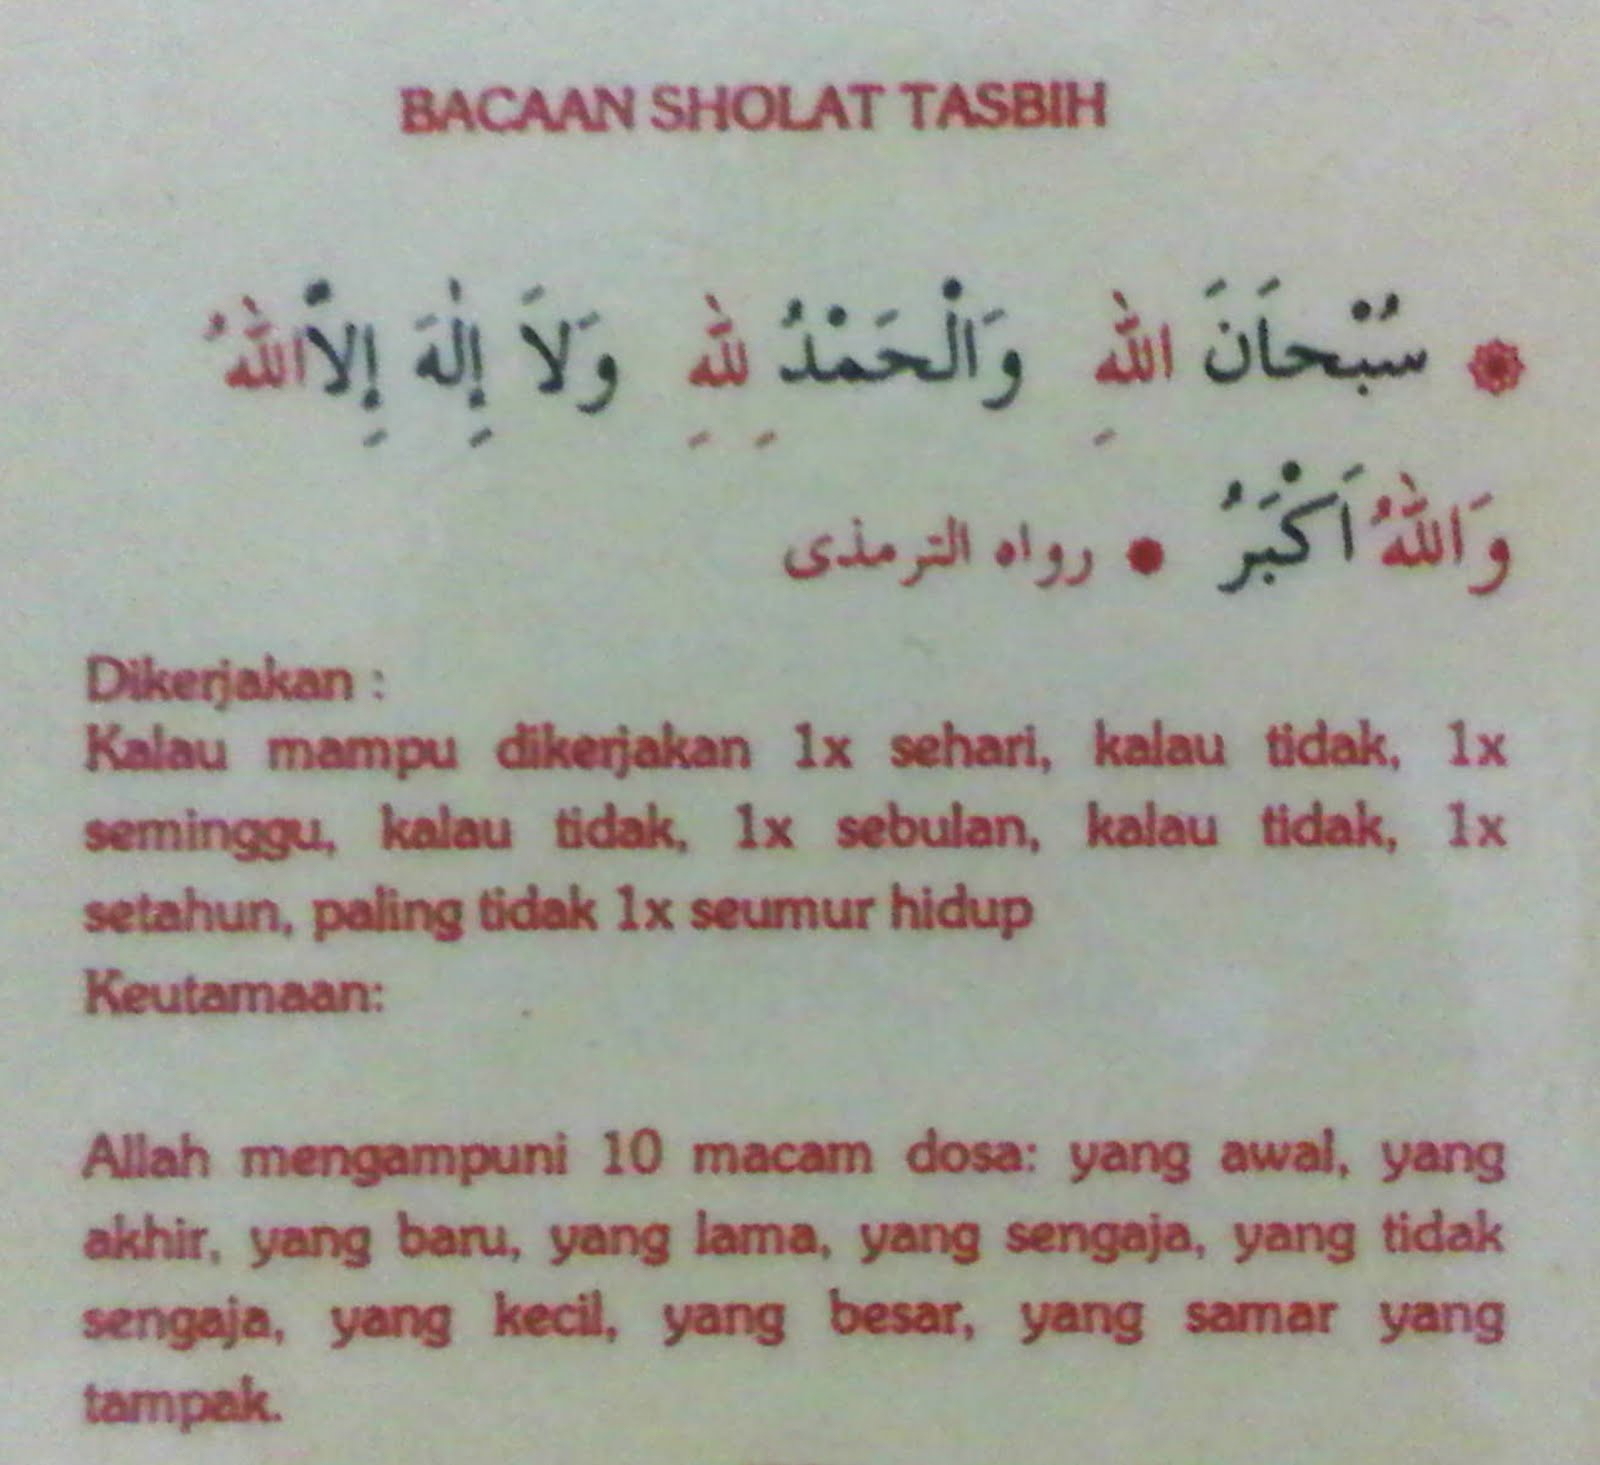 BACAAN SHOLAT TASBIH
سُبْحَانَ اللّٰهِ وَالْحَمْدُ لِلّٰهِ وَلَا إِلٰهَ إِلَّا اللّٰهُ
وَاللّٰهُ اَكْبَرُ • رواه الترمذى
Dikerjakan :
Kalau mampu dikerjakan 1x sehari, kalau tidak, 1x
seminggu, kalau tidak, 1x sebulan, kalau tidak, 1x
setahun, paling tidak 1x seumur hidup
Keutamaan:
Allah mengampuni 10 macam dosa: yang awal, yang
akhir, yang baru, yang lama, yang sengaja, yang tidak
sengaja, yang kecil, yang besar, yang samar yang
tampak.